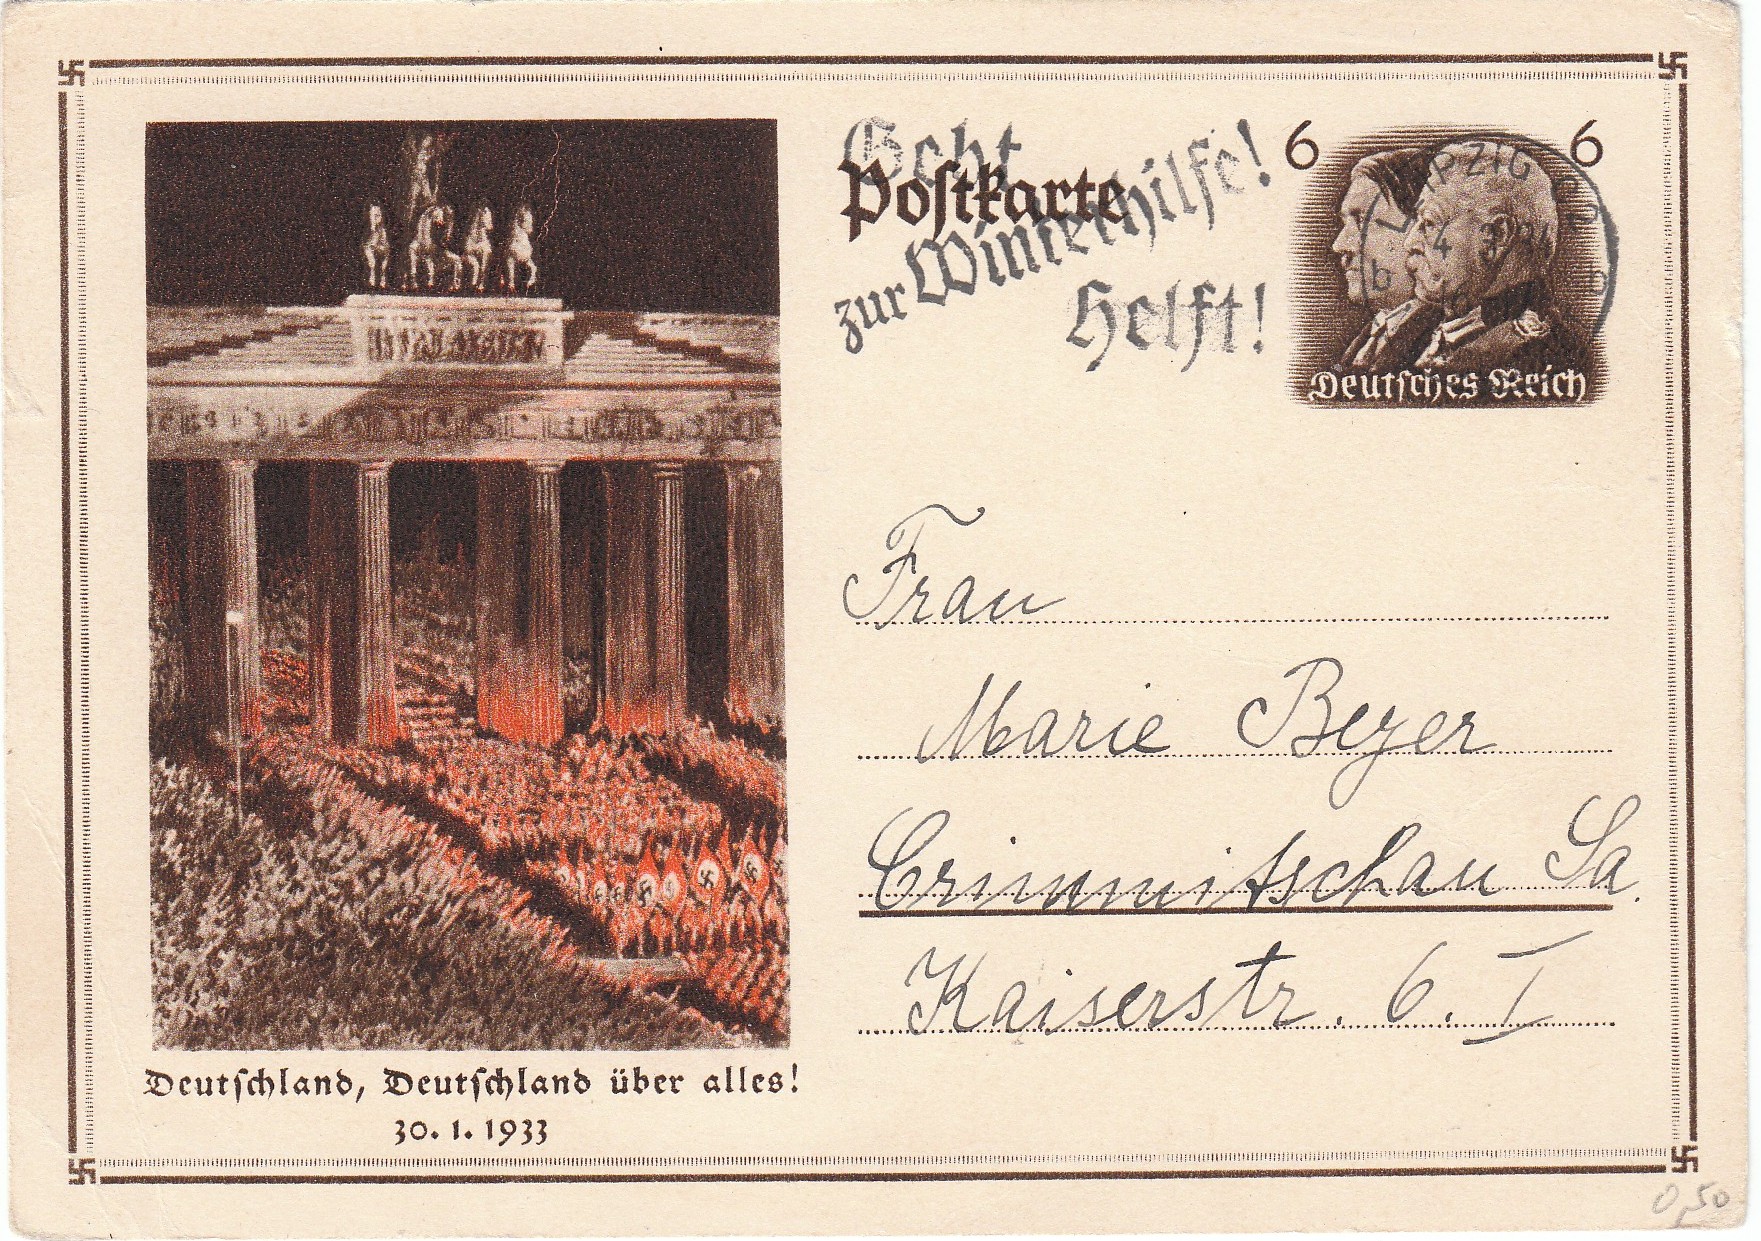 Geht
Postkarte
zur Winterhilfe!
Helft!
6 6
LEIPZIG
4 3 34
Deutsches Reich
Frau
Marie Beyer
Crimmitschau Sa.
Kaiserstr. 6. I
Deutschland, Deutschland über alles!
30. 1. 1933
0,50